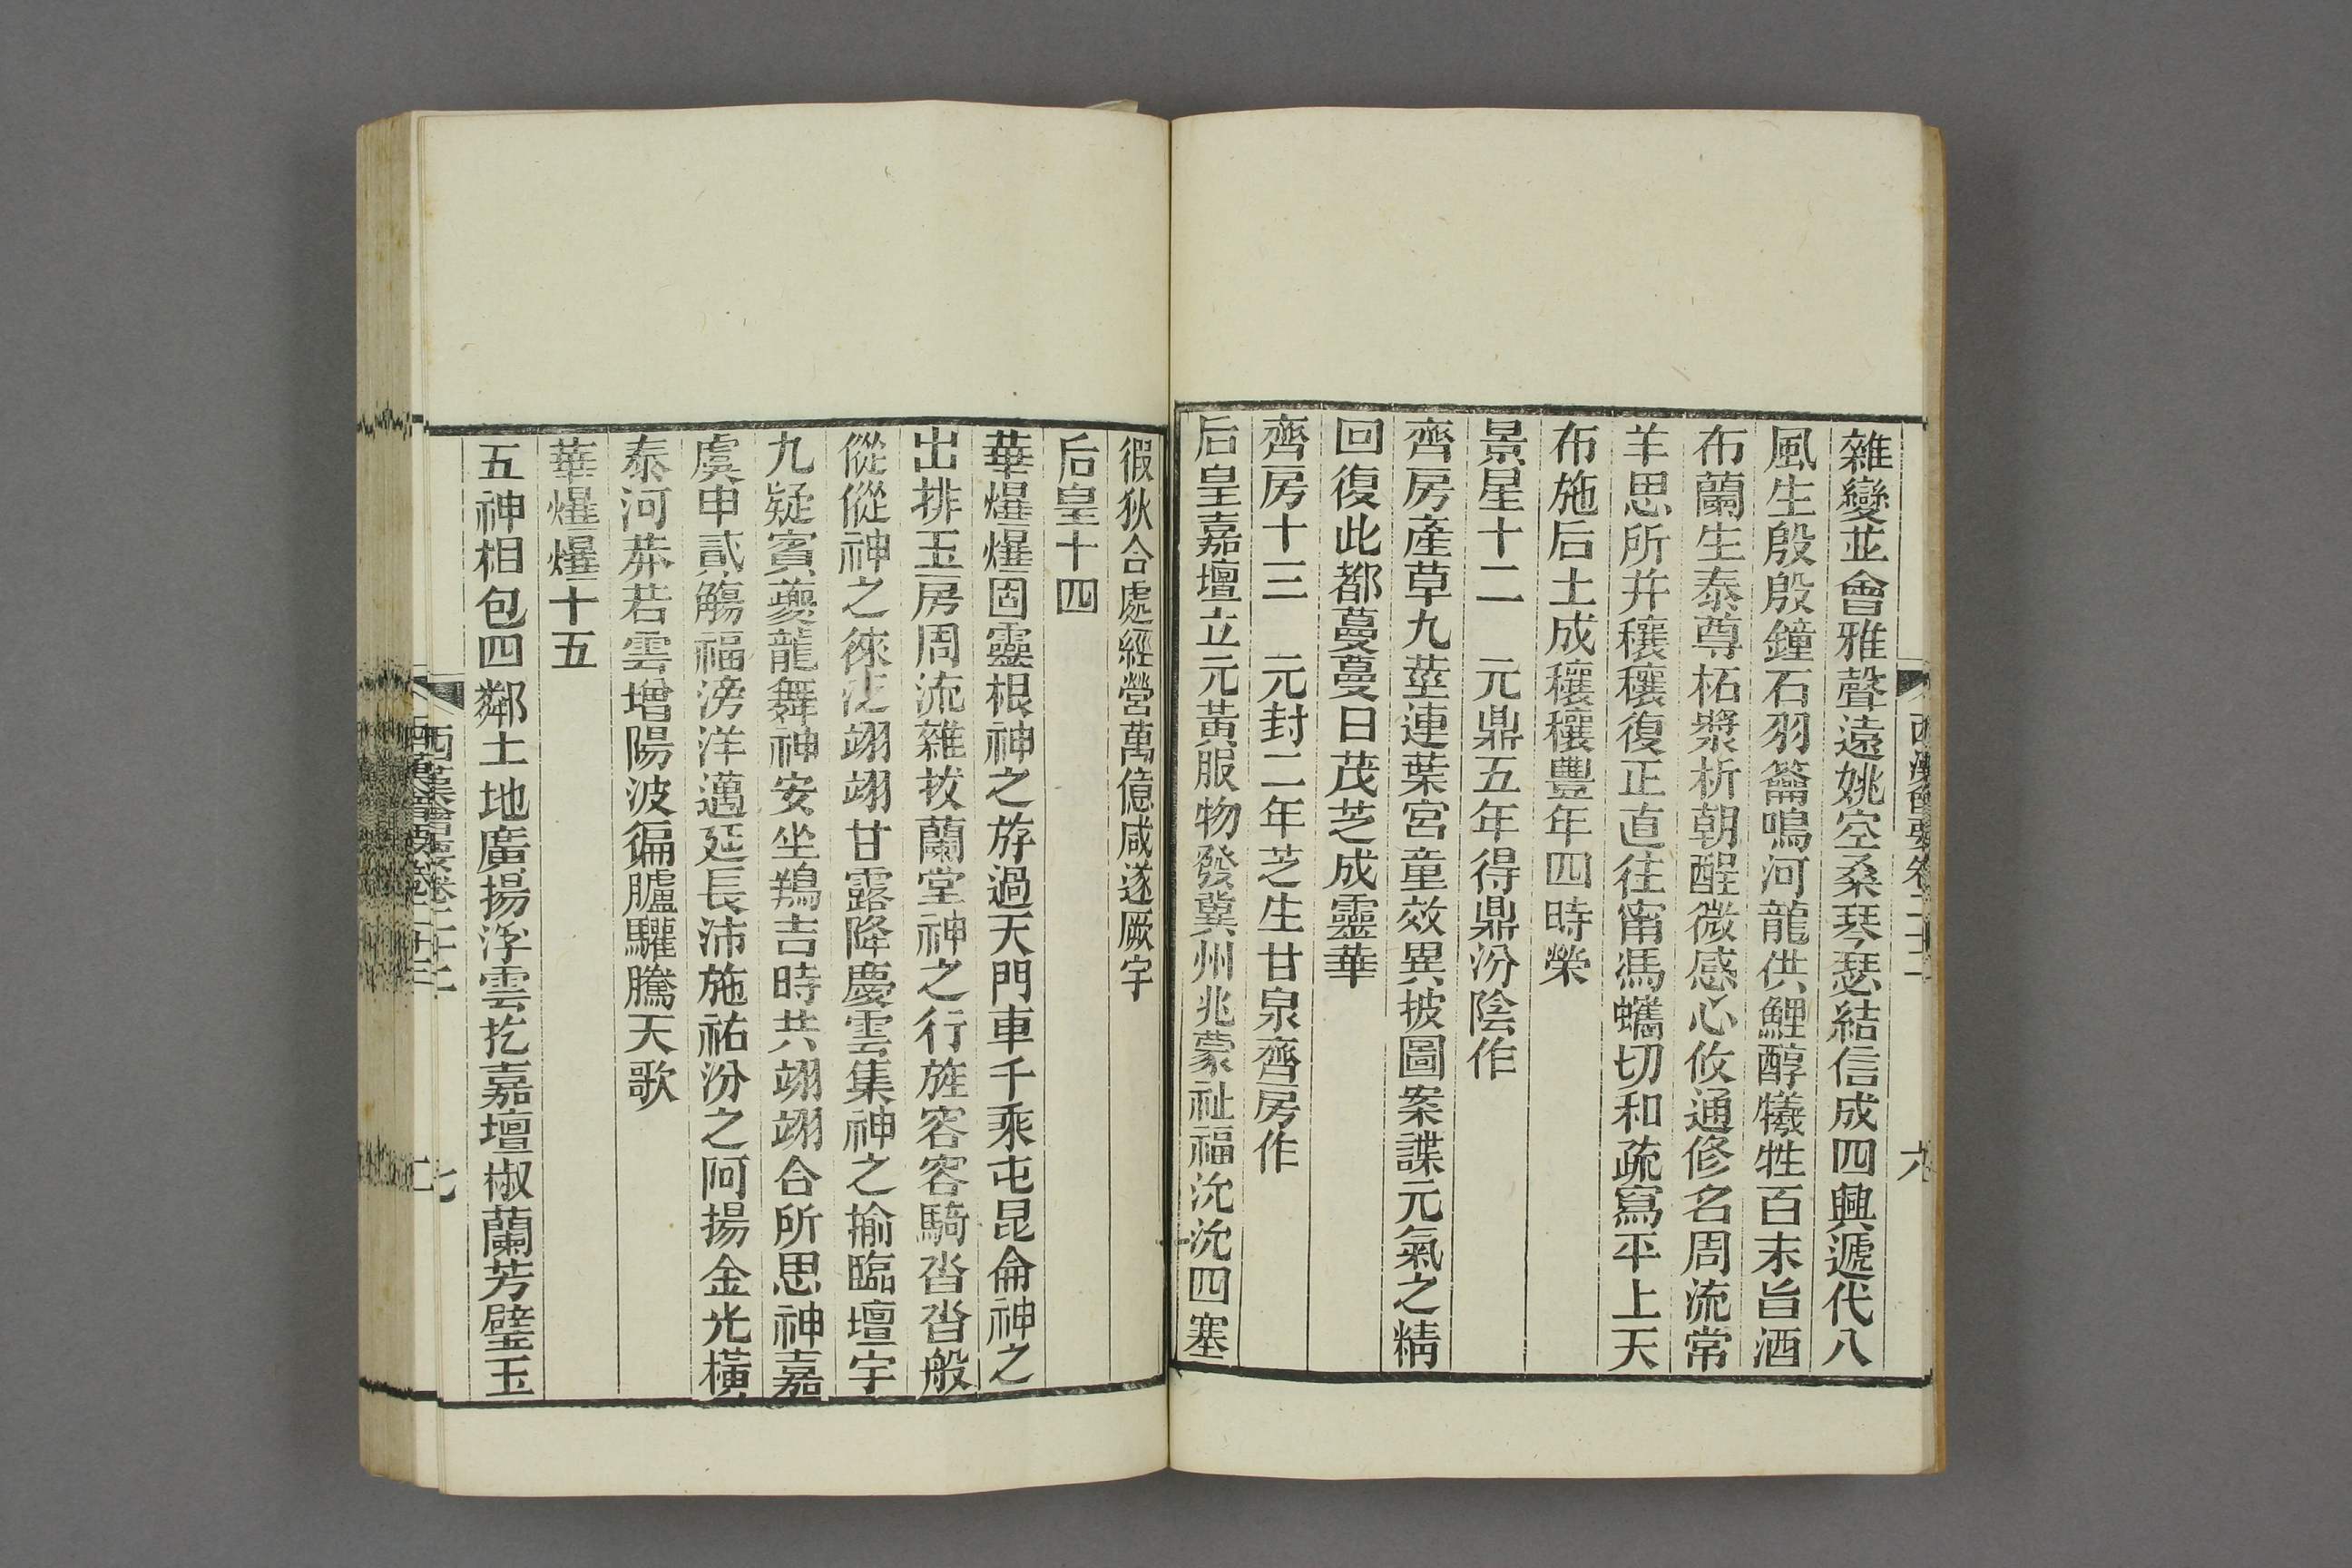 雜變並會雅聲遠姚空桑琴瑟結信成四興遞代八
風生殷殷鐘石羽籥鳴河龍供鯉醇犧牲百末旨酒
布蘭生泰尊柘漿析朝酲微感心攸通修名周流常
羊思所并穰穰復正直往甯馮蠵切和疏寫平上天
布施后土成穰穰豐年四時榮
景星十二　元鼎五年得鼎汾陰作
齊房產草九莖連葉宮童效異披圖案諜元氣之精
回復此都蔓蔓日茂芝成靈華
齊房十三　元封二年芝生甘泉齊房作
后皇嘉壇立元黃服物發冀州兆蒙祉福沇沇四塞
徦狄合處經營萬億咸遂厥宇
后皇十四
華爗爗固靈根神之斿過天門車千乘屯昆侖神之
出排玉房周流雜拔蘭堂神之行旌容容騎沓沓般
從從神之徠泛翊翊甘露降慶雲集神之揄臨壇宇
九疑賓夔龍舞神安坐鴹吉時共翊翊合所思神嘉
虞申貳觴福滂洋邁延長沛施祐汾之阿揚金光橫
泰河莽若雲增陽波徧臚驩騰天歌
華爗爗十五
五神相包四鄰土地廣揚浮雲扢嘉壇椒蘭芳璧玉
西漢會要卷二十二
七